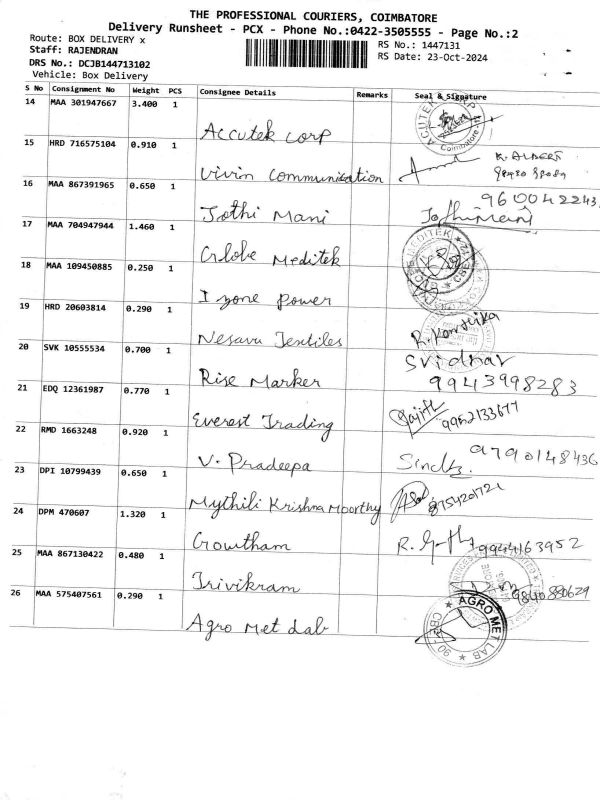 THE PROFESSIONAL COURIERS, COIMBATORE
Delivery Runsheet - PCX - Phone No.:0422-3505555 - Page No.:2
Route: BOX DELIVERY x
RS No.: 1447131
Staff: RAJENDRAN
RS Date: 23-Oct-2024
DRS No.: DCJB144713102
Vehicle: Box Delivery
S No Consignment No Weight PCS Consignee Details Remarks Seal & Signature
14 MAA 301947667 3.400 1 Accutek corp
Coimbatore
15 HRD 716575104 0.910 1 Vivin communication K. ALBERT
16 MAA 867391965 0.650 1 Jothi Mani Jothimani 960042243
17 MAA 704947944 1.460 1 Globe Meditek
18 MAA 109450885 0.250 1 I zone power
19 HRD 20603814 0.290 1 Nesavu Textiles R. Karthika
20 SVK 10555534 0.700 1 Rise Marker Sridhar 9943998283
21 EDQ 12361987 0.770 1 Everest Trading 9952133677
22 RMD 1663248 0.920 1 V. Pradeepa 9790148436
23 DPI 10799439 0.650 1 Mythili Krishna moorthy 8754201721
24 DPM 470607 1.320 1 Gowtham 9944163952
25 MAA 867130422 0.480 1 Trivikram 9840880629
26 MAA 575407561 0.290 1 Agro Met Lab
AGRO MET LAB